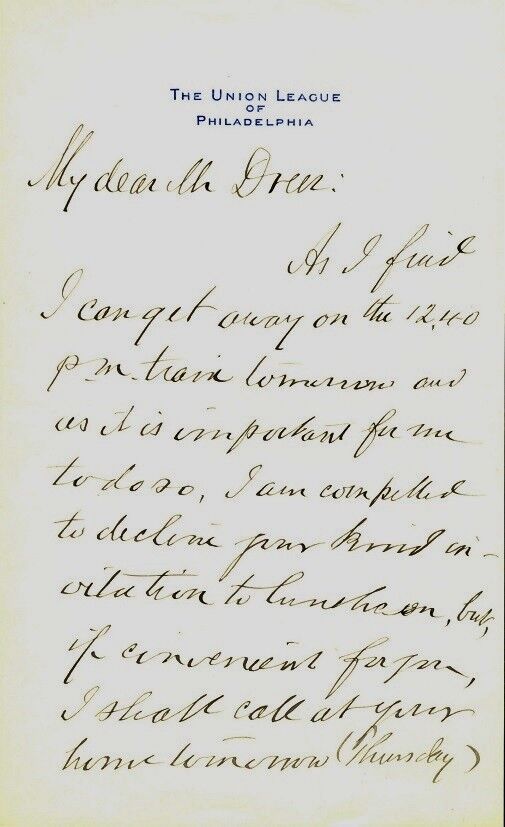 THE UNION LEAGUE
OF
PHILADELPHIA
My dear Mr Dreer:
As I find
I can get away on the 12.40
p.m. train tomorrow and
as it is important for me
to do so, I am compelled
to decline your kind in-
vitation to luncheon, but,
if convenient for you,
I shall call at your
home tomorrow (Thursday)